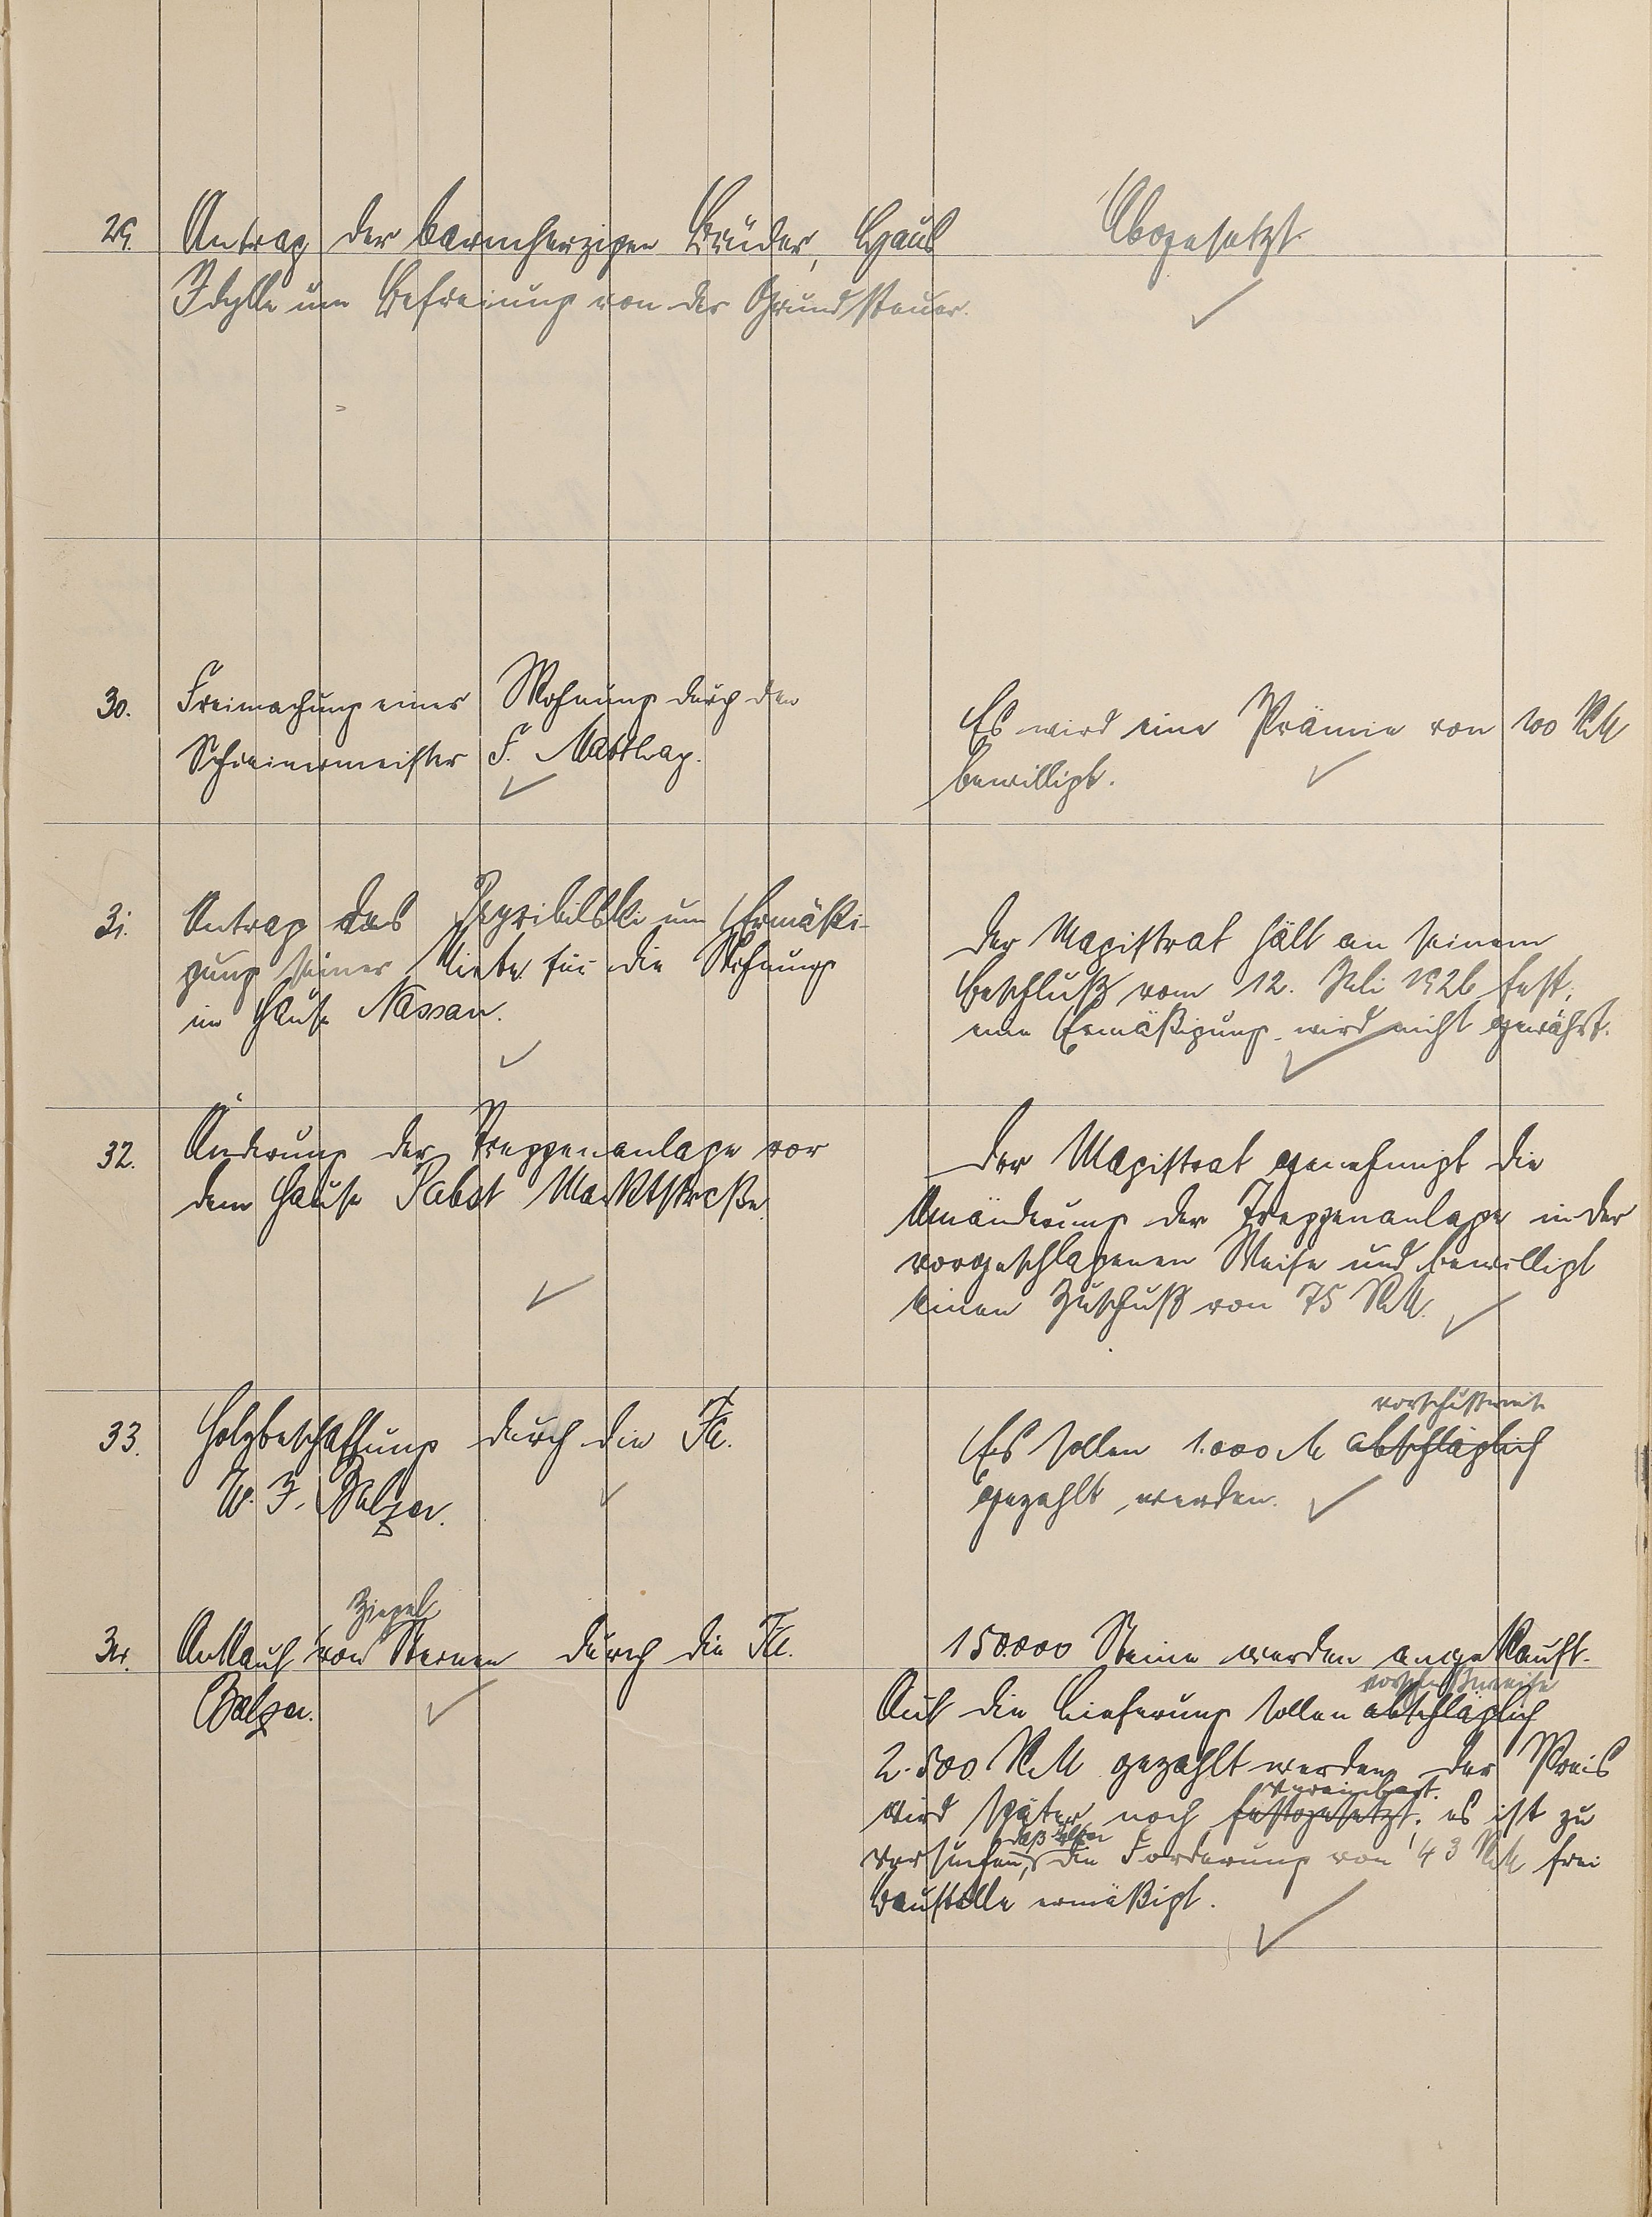 29. Antrag der barmherzigen Brüder, Haus
Idylle um Befreiung von der Grundsteuer.
Abgesetzt
30. Freimachung einer Wohnung durch den
Schreinermeister F. Matthay.
Es wird eine Prämie von 100 RM
bewilligt.
31. Antrag des Przibilski um Ermäßi-
gung seiner Miete für die Wohnung
im Hause Nassau.
Der Magistrat hält an seinem
Beschluß vom 12. Juli 1926 fest;
eine Ermäßigung wird nicht gewährt.
32. Änderung der Treppenanlage vor
dem Hause Pabst Marktstraße.
Der Magistrat genehmigt die
Umänderung der Treppenanlage in der
vorgeschlagenen Weise und bewilligt
einen Zuschuß von 75 RM.
33. Holzbeschaffung durch die Fa.
W. F. Balzer.
vorschußweise
Es sollen 1.000 M abschläglich
gezahlt werden.
Ziegel
34. Ankauf von Steinen durch die Fa.
Balzer.
150.000 Steine werden angekauft.
vorschußweise
Auf die Lieferung sollen abschläglich
2.500 RM gezahlt werden, der Preis
vereinbart.
wird später noch festgesetzt; es ist zu
daß
versuchen, die Forderung von 43 RM frei
Baustelle ermäßigt.